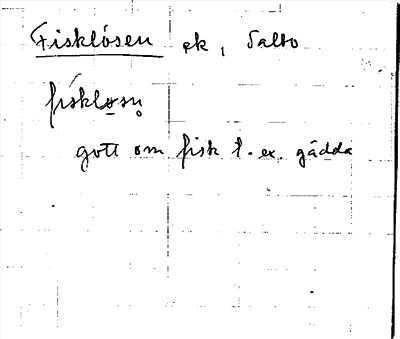 Fisklösen ek, Salto
fisklo̲sn̥
gott om fisk t. ex. gädda